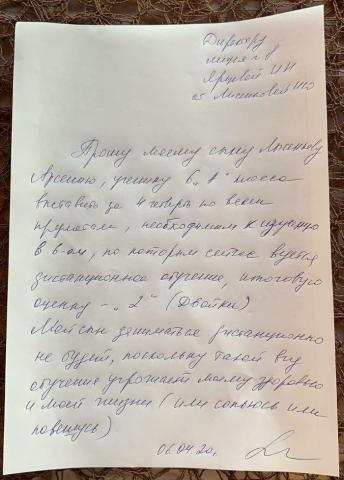 Директору
лицея № 8
Ярцевой И Н
от Лысенковой М Ю
Прошу моему сыну Лысенкову
Арсению, ученику 6 "А" класса
выставить за 4 четверть по всем
предметам, необходимым к изучению
в 6-ом, по которым сейчас ведется
дистанционное обучение, итоговую
оценку - "2" (Двойка)
Мой сын заниматься дистанционно
не будет, поскольку такой вид
обучения угрожает моему здоровью
и моей жизни (или сопьюсь или
повешусь)
06.04.20г